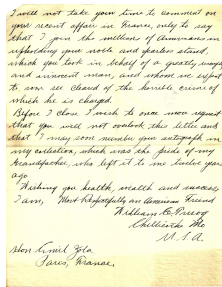 I will not take your time to comment on
your recent affair in France, only to say
that I join the millions of Americans in
upholding your noble and fearless stand,
which you took in behalf of a greatly wronged
and innocent man, and whom we expect
to soon see cleared of the horrible crime of
which he is charged.
Before I close I wish to once more request
that you will not overlook this letter and
that I may soon number your autograph in
my collection, which was the pride of my
Grandfather, who left it to me twelve years
ago.
Wishing you health, wealth and success
I am, Most Respectfully an American Friend
William C.
Chillicothe Mo
U.S.A.
Hon Emil Zola
Paris, France.